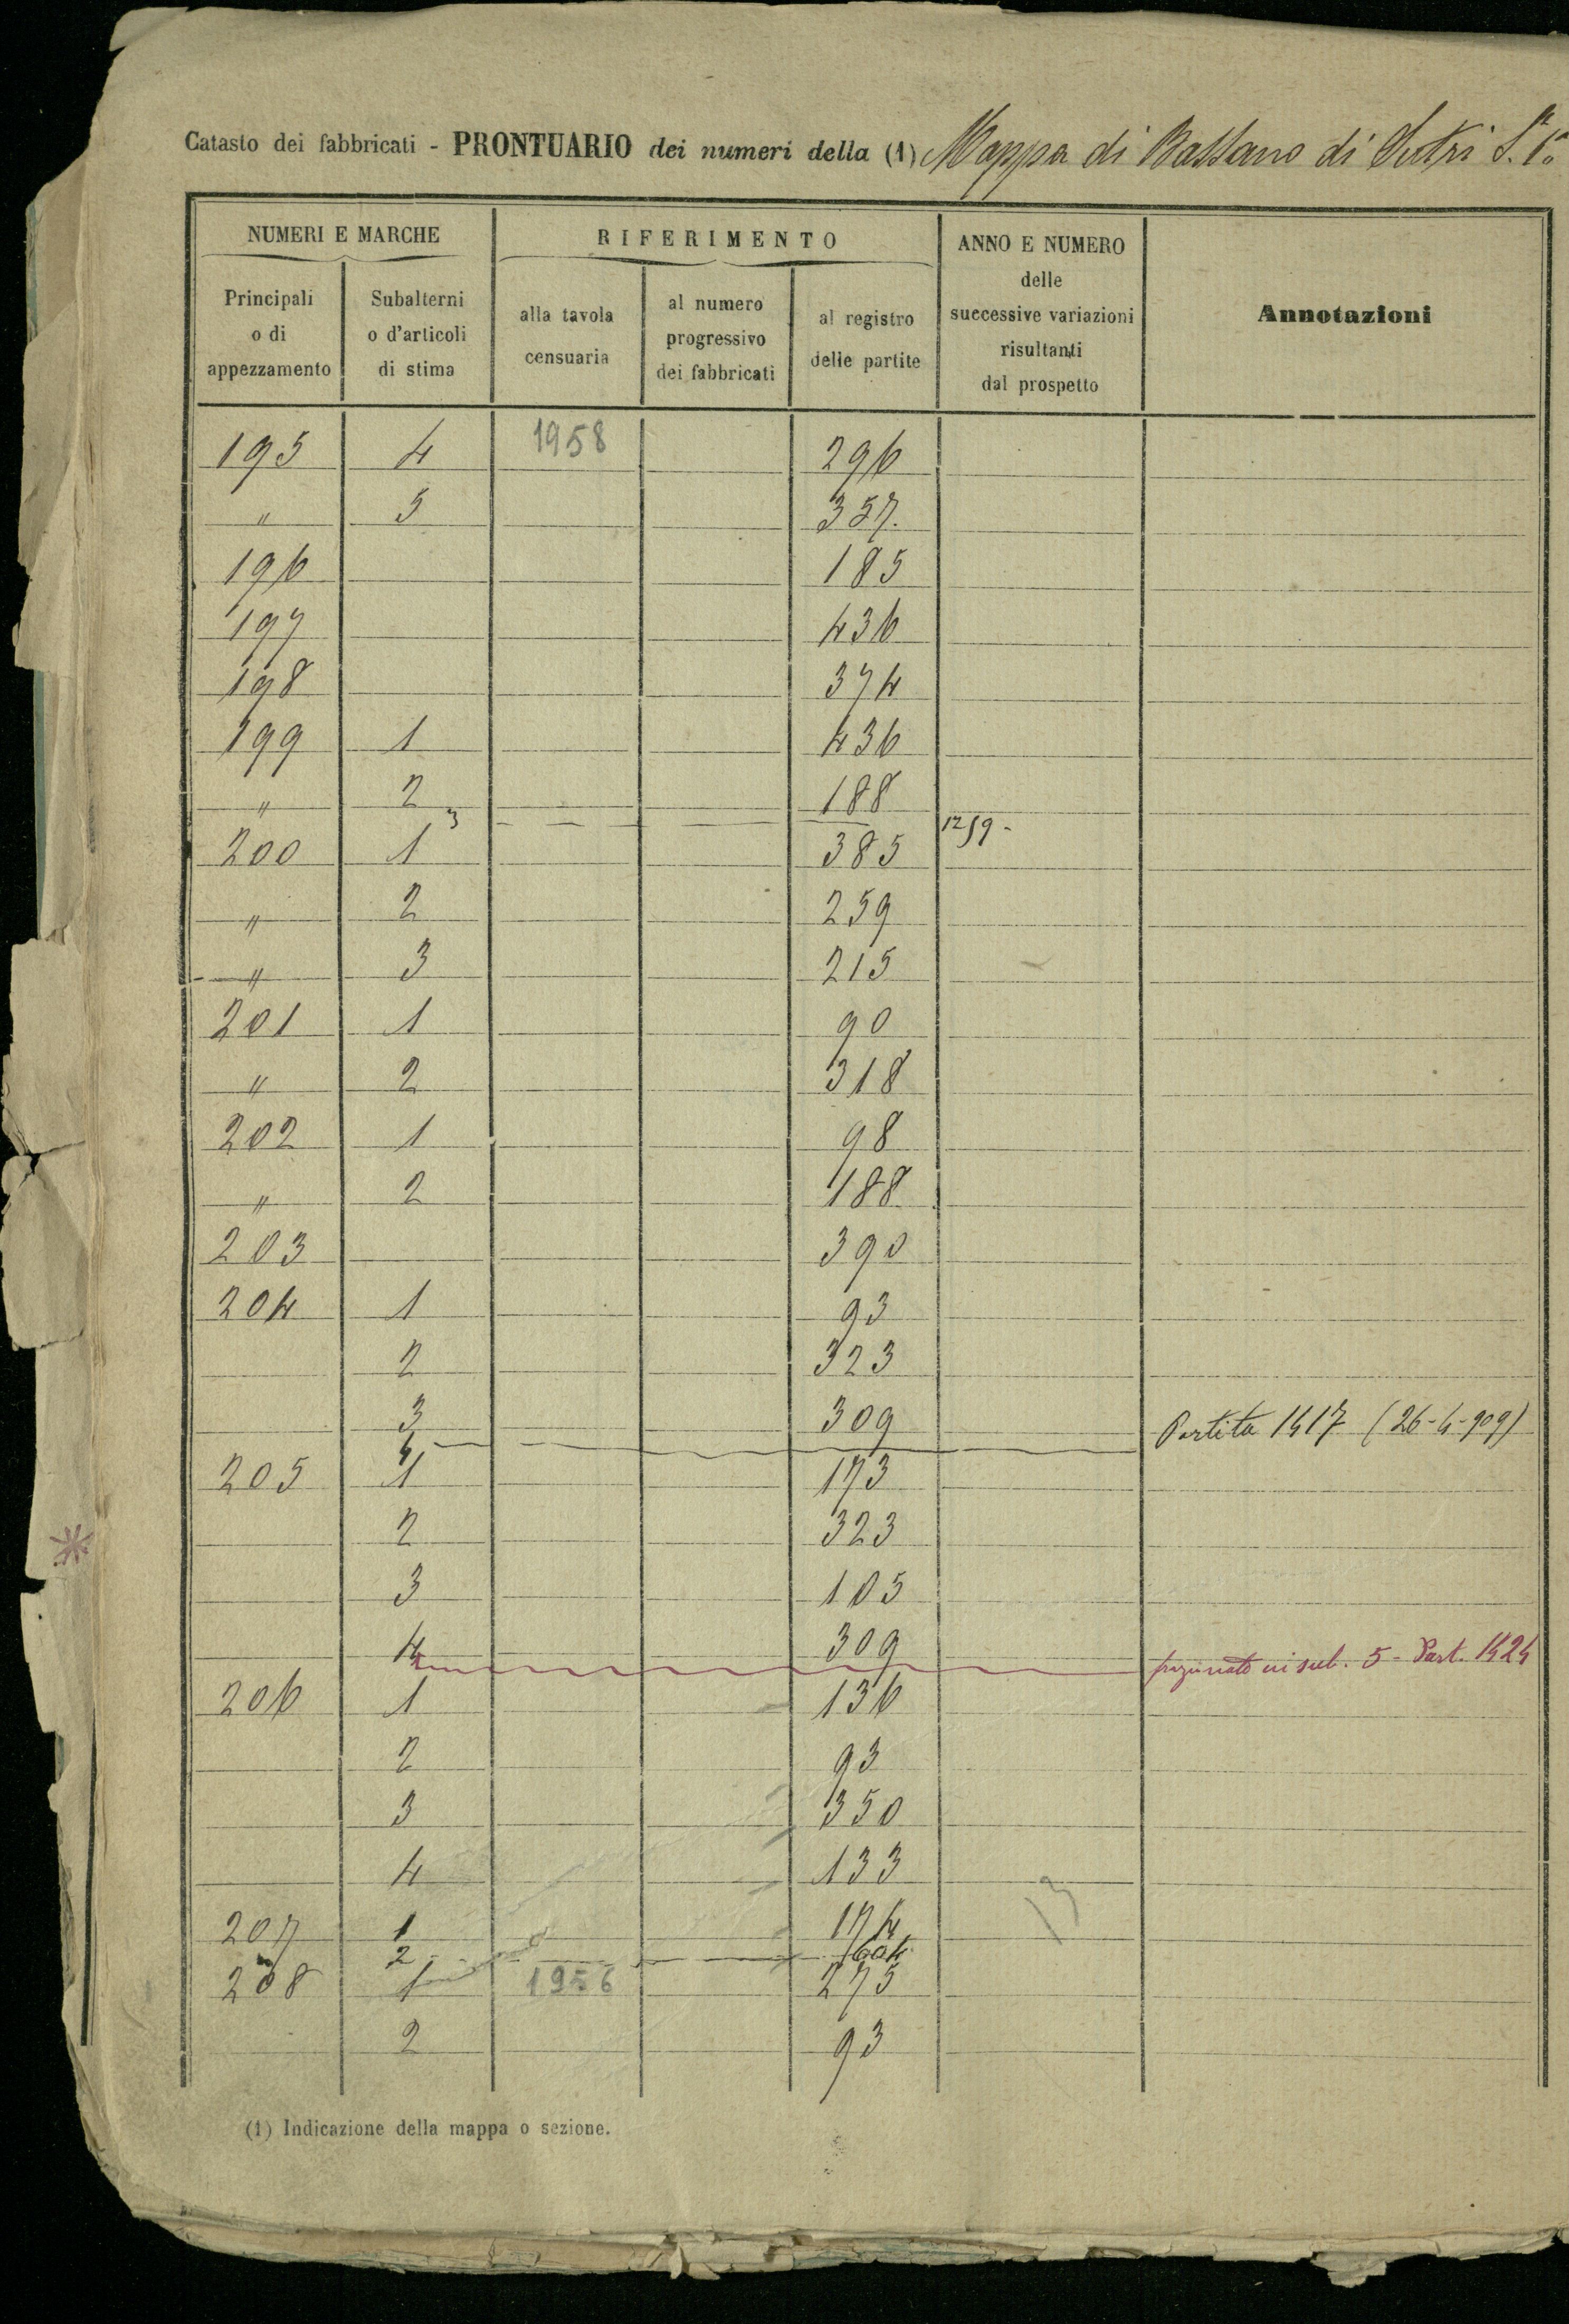 Catasto dei fabbricati - PRONTUARIO dei numeri della (1) Mappa di Bassano di Sutri S.ne 1a
NUMERI E MARCHE
Principali o di appezzamento
Subalterni o d'articoli di stima
RIFERIMENTO
alla tavola censuaria
al numero progressivo dei fabbricati
al registro delle partite
ANNO E NUMERO delle successive variazioni risultanti dal prospetto
Annotazioni
195 4 1958 296
" 5 357.
196 185
197 436
198 374
199 1 436
" 2 188
3 1259-
200 1 385
" 2 259
" 3 215
201 1 90
" 2 318
202 1 98
" 2 188
203 390
204 1 93
2 323
3 309
4 Partita 1417 (26-4-909)
205 1 173
2 323
3 105
4 309
in sub. 5 - Part. 1424
206 1 136
2 93
3 350
4 133
13
207 1 174
" 2 604
208 1 1956 275
2 93
(1) Indicazione della mappa o sezione.